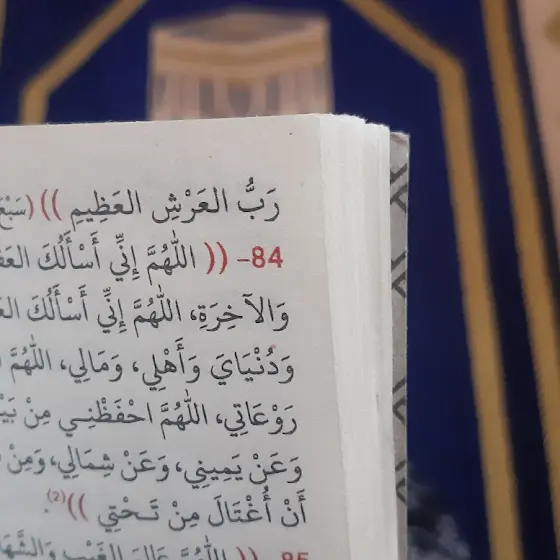 رَبُّ العَرْشِ العَظِيمِ )) (سَبْعَ
84- (( اللَّهُمَّ إِنِّي أَسْأَلُكَ
وَالآخِرَةِ، اللَّهُمَّ إِنِّي أَسْأَلُكَ
وَدُنْيَايَ وَأَهْلِي، وَمَالِي، اللَّهُمَّ
رَوْعَاتِي، اللَّهُمَّ احْفَظْنِي مِنْ
وَعَنْ يَمِينِي، وَعَنْ شِمَالِي، وَمِنْ
أَنْ أُغْتَالَ مِنْ تَحْتِي ))(2).
85- (( اللَّهُمَّ عَالِمَ الغَيْبِ